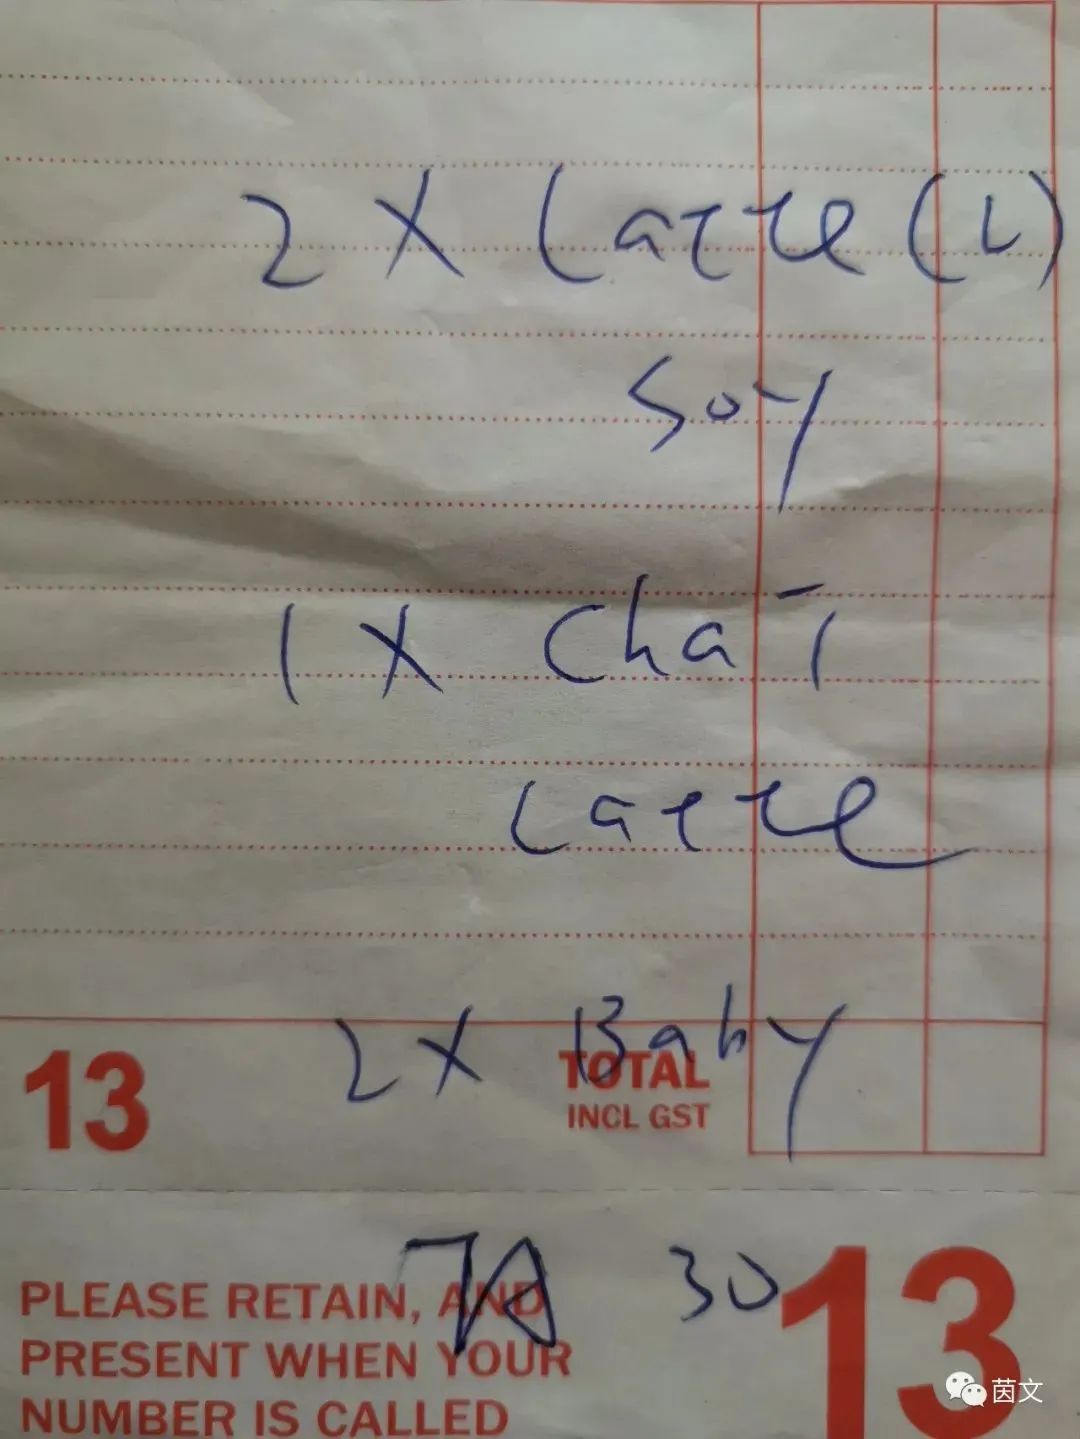 2 X Latte (L)
Soy
1 X Chai
Latte
2 X Baby
13
TOTAL
INCL GST
TA 30
PLEASE RETAIN, AND
PRESENT WHEN YOUR
NUMBER IS CALLED
13
茵文